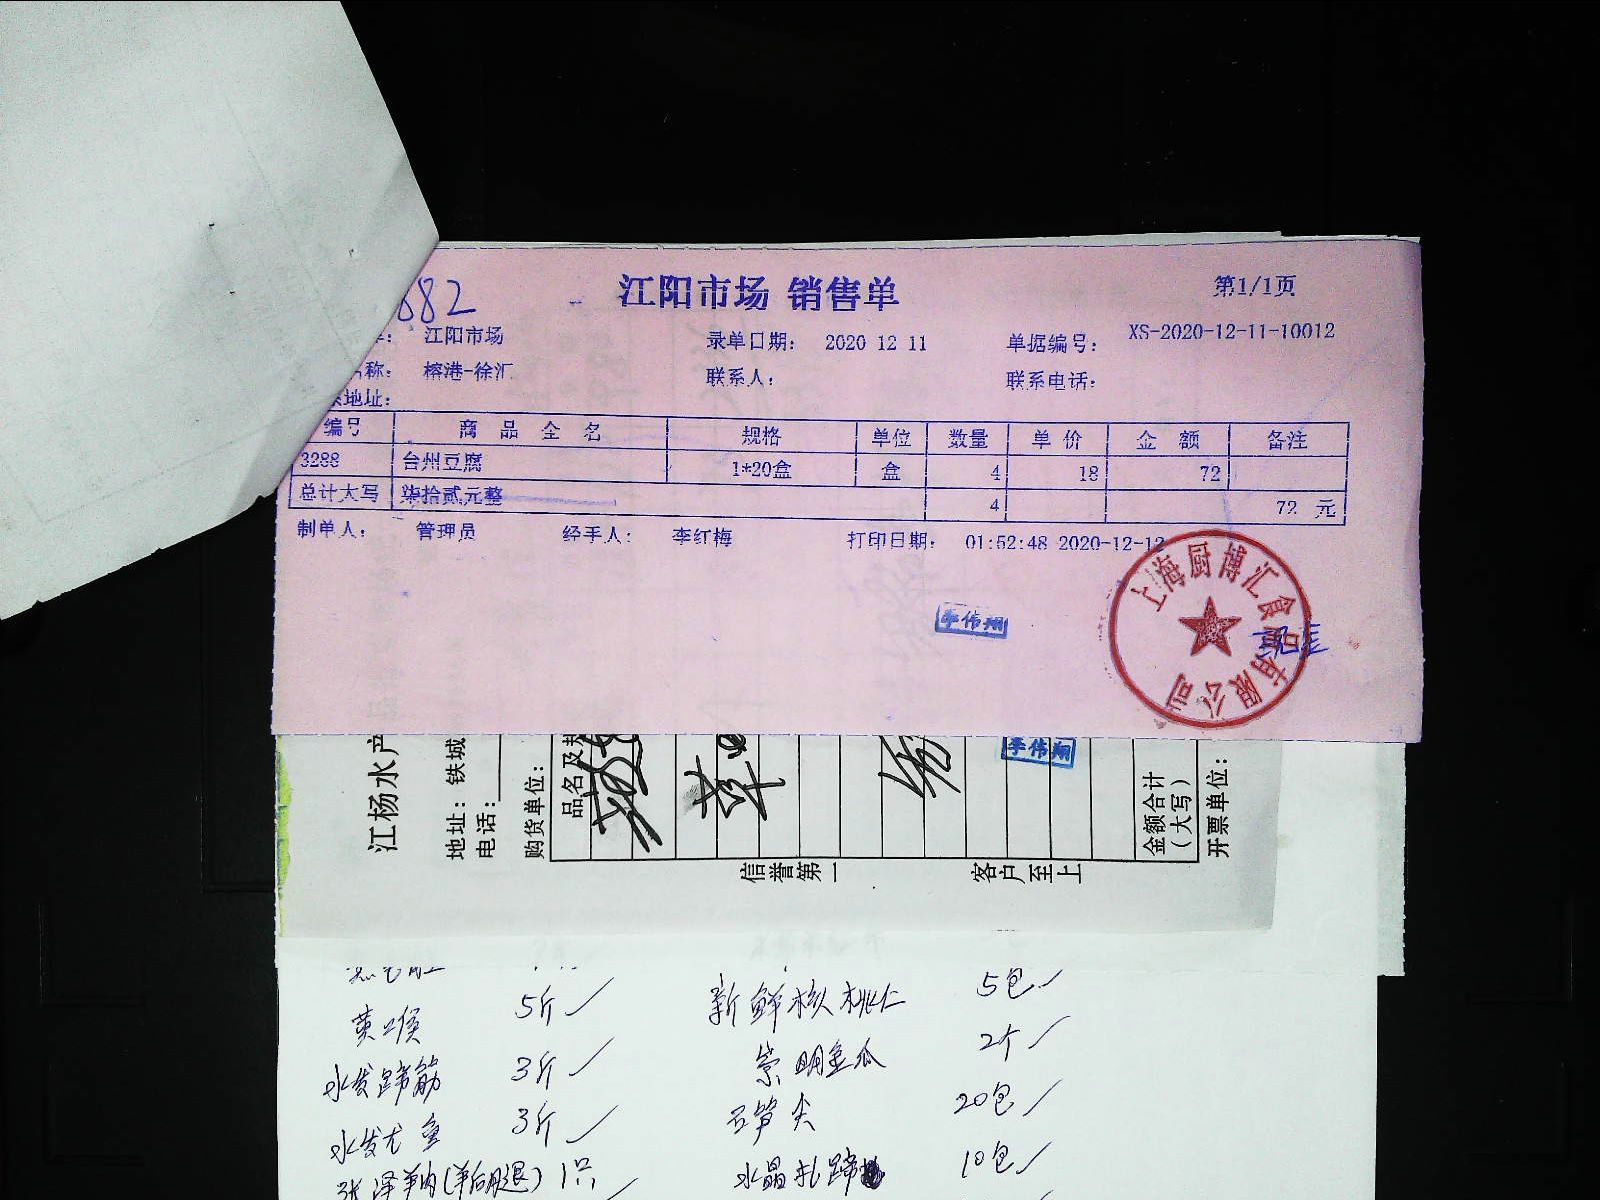 882
江阳市场 销售单
第1/1页
江阳市场
录单日期： 2020 12 11
单据编号： XS-2020-12-11-10012
名称： 榕港-徐汇
联系人：
联系电话：
地址：
编号 商 品 全 名 规格 单位 数量 单 价 金 额 备注
3288 台州豆腐 1*20盒 盒 4 18 72
总计大写 柒拾贰元整 4 72 元
制单人： 管理员 经手人： 李红梅 打印日期： 01:52:48 2020-12-12
上海厨博汇食品有限公司
李伟翔
李伟翔
江杨水产
地址：铁城
电话：
购货单位：
品名及规
金额合计
（大写）
开票单位：
信誉第一
客户至上
黄喉 5斤 新鲜核桃仁 5包
水发蹄筋 3斤 崇明金瓜 2个
水发尤鱼 3斤 笋尖 20包
1只 水晶扎蹄 10包